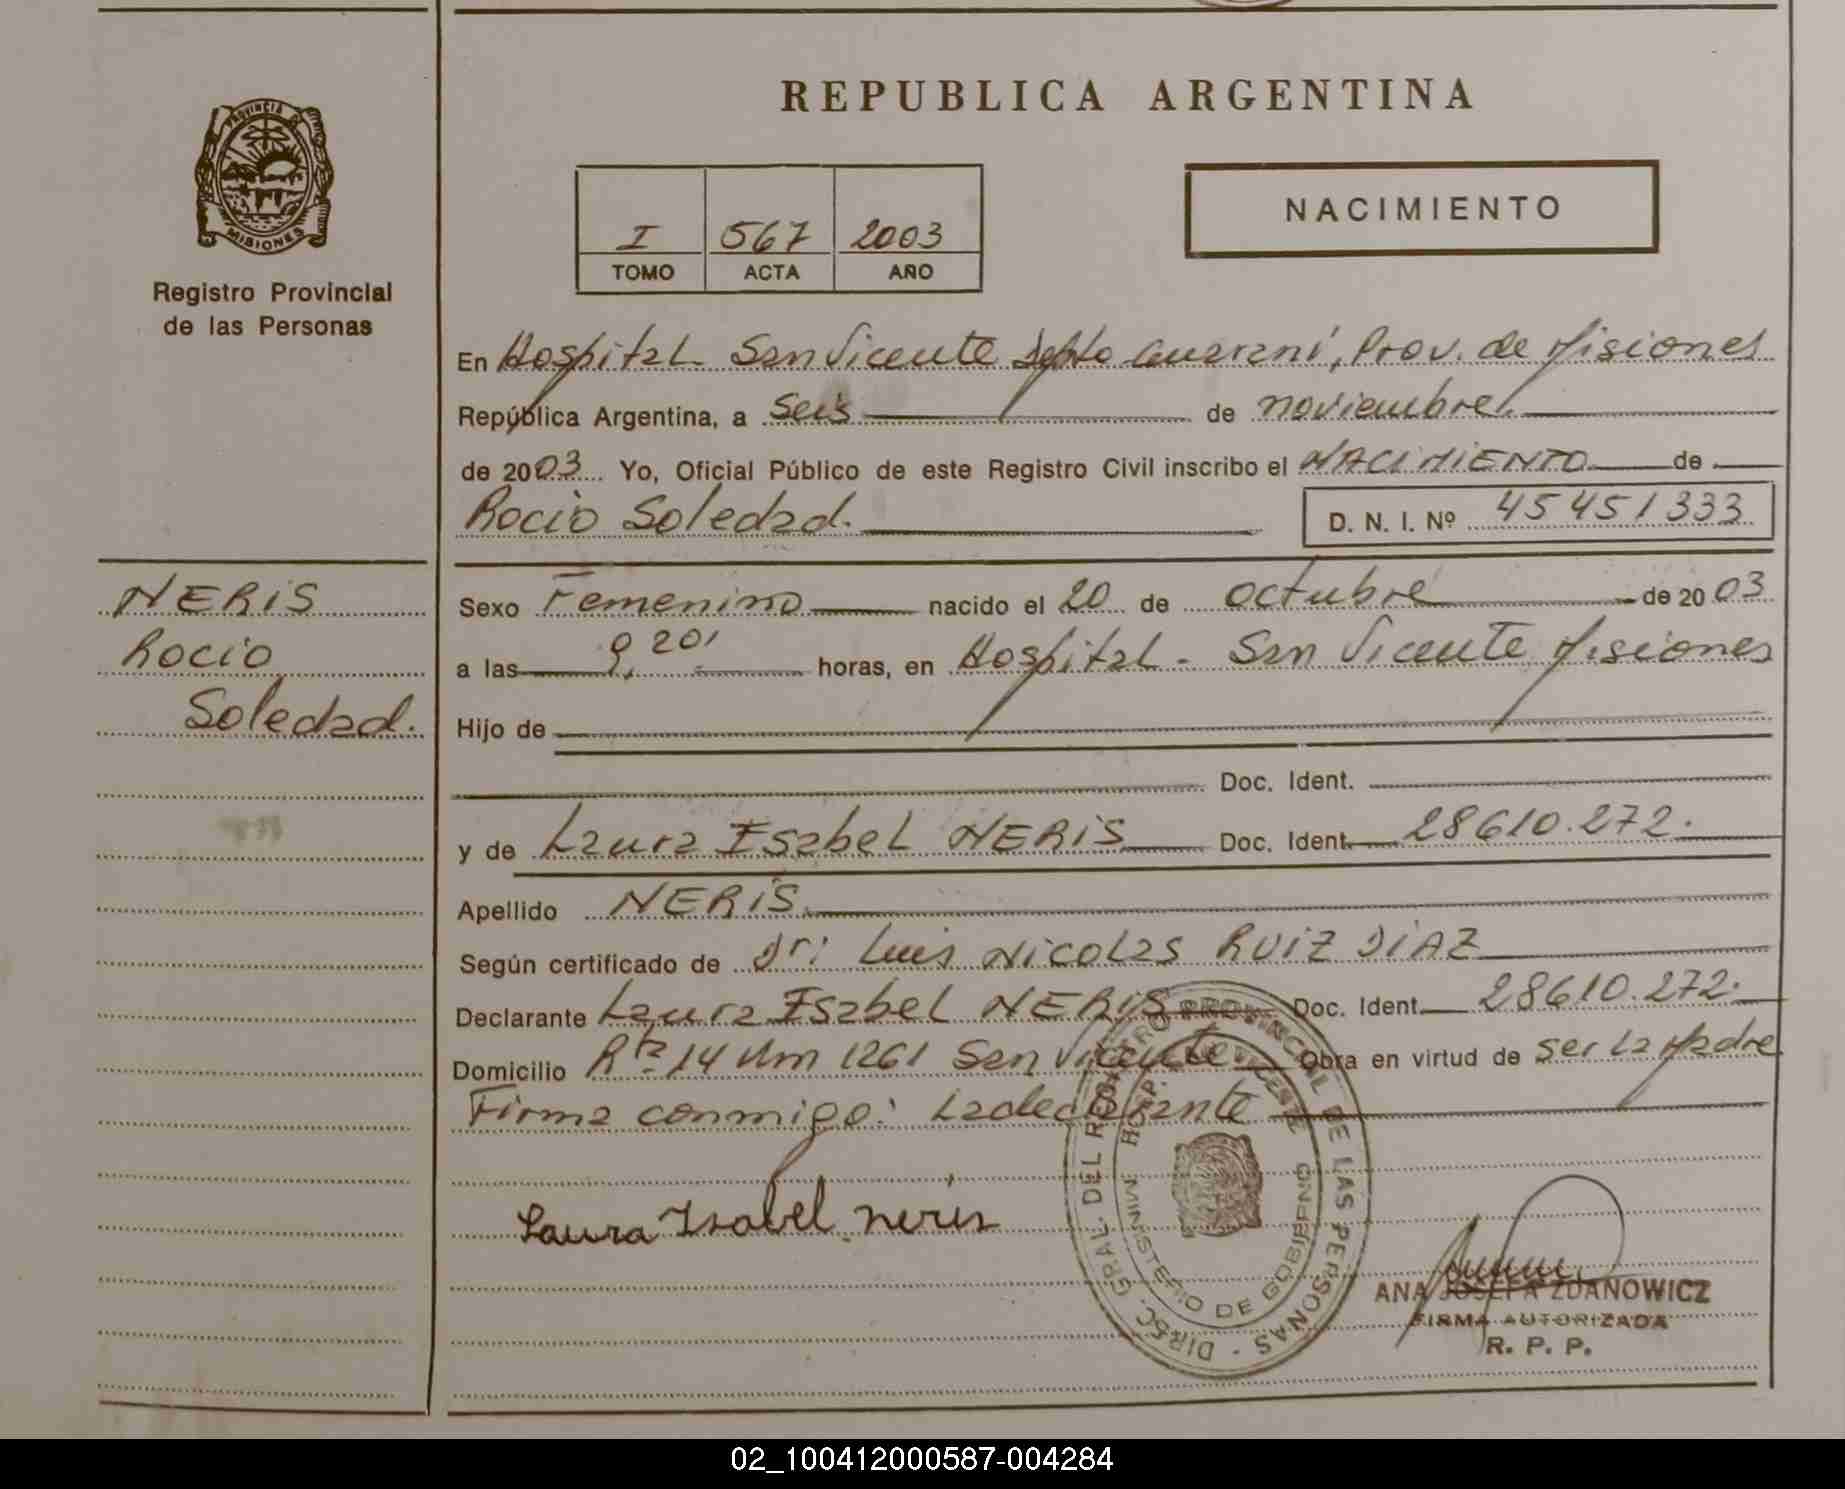 REPUBLICA ARGENTINA
PROVINCIA DE
MISIONES
Registro Provincial
de las Personas
NACIMIENTO
I 567 2003
TOMO ACTA AÑO
En Hospital San Vicente Depto Guaraní, Prov. de Misiones
República Argentina, a Seis de noviembre
de 2003 Yo, Oficial Público de este Registro Civil inscribo el NACIMIENTO de
Rocio Soledad.
D. N. I. Nº 45451333
NERIS
Rocio
Soledad.
Sexo Femenino nacido el 20 de octubre de 2003
a las 9,20' horas, en Hospital - San Vicente Misiones
Hijo de
Doc. Ident.
y de Laura Isabel NERIS Doc. Ident. 28610.272.
Apellido NERIS
Según certificado de Dr: Luis Nicolas RUIZ DIAZ
Declarante Laura Isabel NERIS Doc. Ident. 28610.272.
Domicilio Rta. 14 Km 1261 San Vicente Obra en virtud de ser la Madre
Firma conmigo: La declarante
Laura Isabel neris
DIREC. GRAL. DEL REGISTRO PROVINCIAL DE LAS PERSONAS
HOSP. VICENTE
MINISTERIO DE GOBIERNO
ANA JOSEFA ZDANOWICZ
FIRMA AUTORIZADA
R. P. P.
02_100412000587-004284